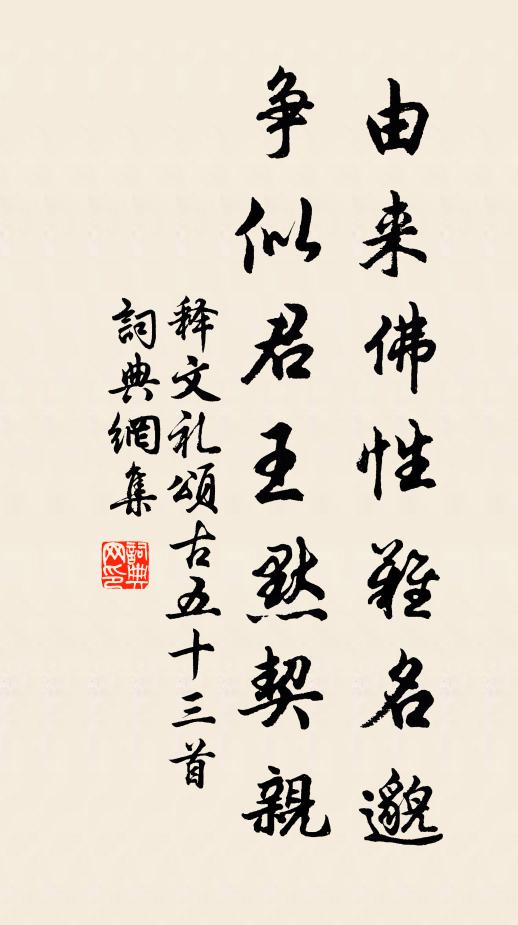 由来佛性難名邈
争似君王默契親
释文礼頌古五十三首
詞典網集
詞典网印